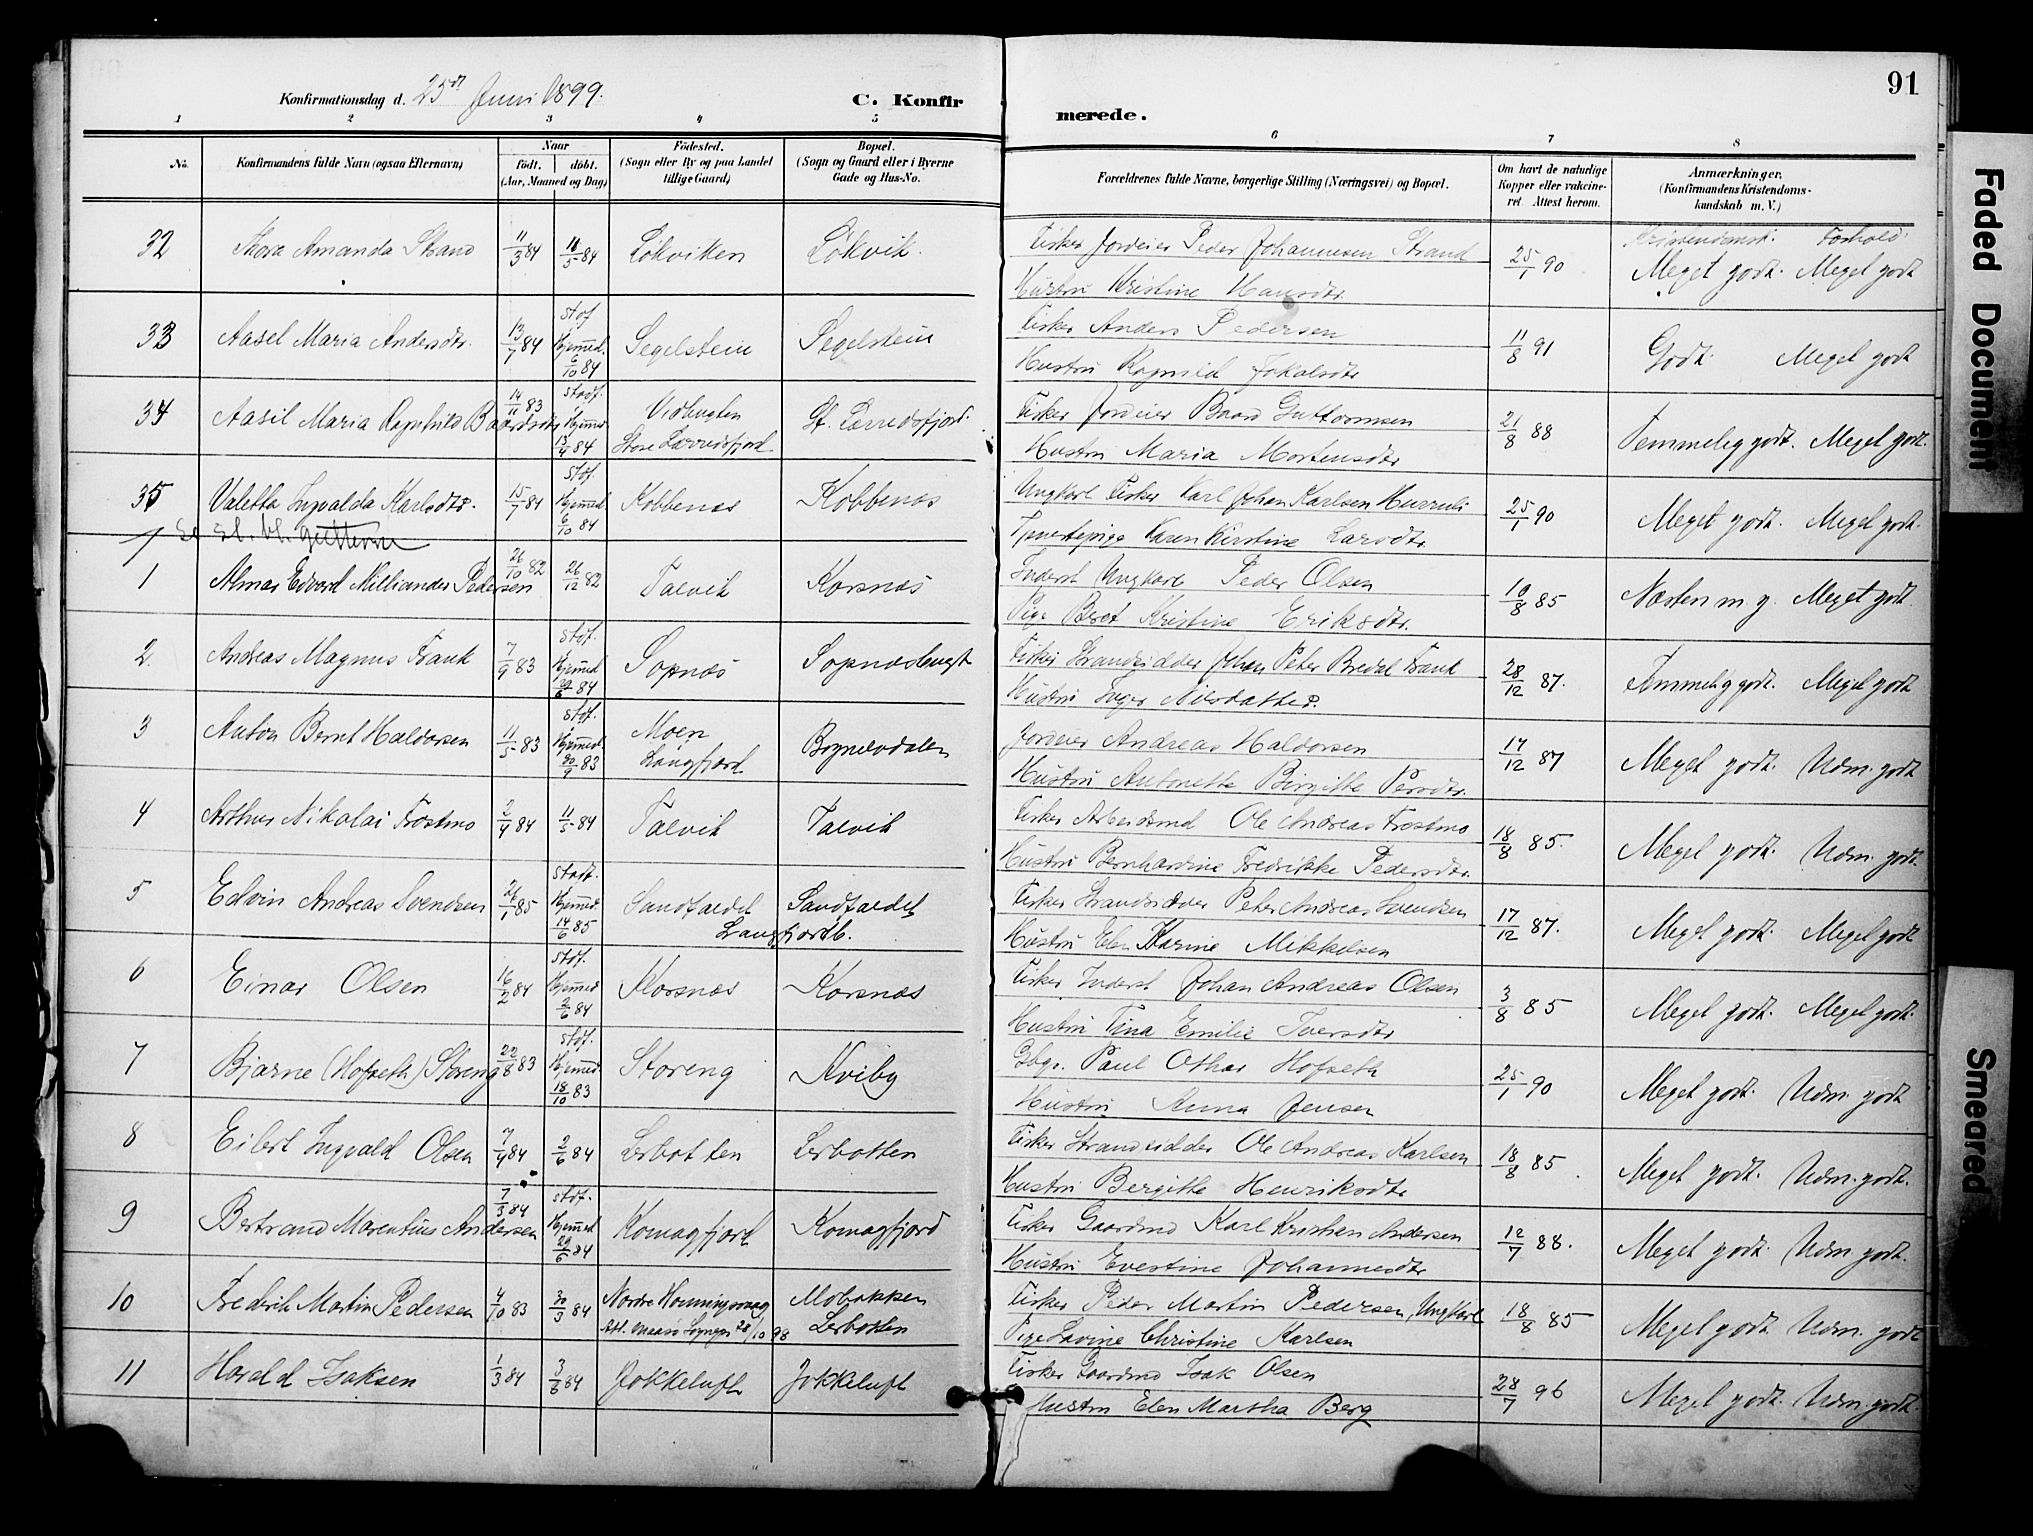 91
Konfirmationsdag d. 25de Juni 1899.
C. Konfirmerede.
1 2 3 4 5 6 7 8
No. Konfirmandens fulde Navn (ogsaa Efternavn) Naar født. døbt. (Aar, Maaned og Dag) Fødested. (Sogn eller By og paa Landet tillige Gaard) Bopæl. (Sogn og Gaard eller i Byerne Gade og Hus-No. Forældrenes fulde Navne, borgerlige Stilling (Næringsvei) og Bopæl. Om havt de naturlige Kopper eller vakcineret Attest herom. Anmærkninger. (Konfirmandens Kristendomskundskab m. V.)
Kristendomsk. Forhold.
32 Thora Amanda Strand 11/3 84 11/5 84 Lökviken Lökvik. Fisker Jordeier Peder Johannesen Strand 25/1 90 Meget godt. Meget godt
Hustru Kristine Hansdtr.
33 Aasel Maria Andersdtr. 13/7 84 Hjemmed. 6/10 84 Segelstein Segelstein Fisker Anders Pedersen 11/8 91 Godt. Meget godt
Hustru Ragnild Jokalsdtr
34 Aasil Maria Ragnhild Baardsdtr 14/11 83 Hjemmed 13/4 84 Vidbugten Store Lerredsfjord St. Lerredsfjord. Fisker Jordeier Baard Guttormsen 21/8 88 Temmelig godt. Meget godt.
Hustru Maria Mortensdtr
35 Valetta Ingvalda Karlsdtr. 15/7 84 Hjemmed. 6/10 84 Kobbenes Kobbenes Ungkarl Fisker Karl Johan Karlsen 25/1 90 Meget godt. Meget godt.
Tjenestepige Karen Kirstine Larsdtr.
1 Almar Edvard Milliander Pedersen 26/10 82 26/12 82 Talvik Korsnæs Inderst Ungkarl Peder Olsen 10/8 85 Næsten m. g. Meget godt.
Pige Beret Kristine Eriksdtr.
2. Andreas Magnus Frank 7/9 83 stdf. Hjemmed 29/6 84 Sopnæs Sopnæsbugt Fisker Strandsidder Johan Peter Bredal Frank 28/12 87. Temmelig godt. Meget godt
Hustru Inger Nilsdatter.
3 Anton Bernt Haldorsen 11/5 83 stdf. Hjemmed. 30/9 83 Moen Langfjord Bognelvdalen Jordeier Andreas Haldorsen 17/12 87 Meget godt. Udm. godt
Hustru Antonette Birgitte Persdtr.
4 Arthur Nikolai Frostmo 2/4 84 11/5 84 Talvik Talvik Fisker Arbeidsmd Ole Andreas Frostmo 18/8 85. Meget godt. Udm. godt.
Hustru Bernhardine Fredrikke Pedersdtr.
5 Edvin Andreas Svendsen 26/1 85 Hjemmed 14/6 85 Sandfaldet Sandfaldet Langfjordb. Fisker Strandsidder Peter Andreas Svendsen 17/12 87. Meget godt. Meget godt
Hustru Elen Karine Mikkelsen
6 Einar Olsen 16/2 84 stdf. Hjemmed 2/6 84 Korsnæs Korsnæs Fisker Inderst Johan Andreas Olsen 3/8 85 Meget godt. Meget godt.
Hustru Tina Emilie Iversdtr
7 Bjarne (Hofseth) Storeng 22/8 83 stdf. Hjemmed 18/10 83 Storeng Kviby Gbgr. Paul Othar Hofseth 25/1 90 Meget godt. Udm. godt
Hustru Anna Jensen
8 Eilert Ingvald Olsen 7/4 84 2/6 84 Lerbotten Lerbotten Fisker Strandsidder Ole Andreas Karlsen 18/8 85 Meget godt. Udm. godt.
Hustru Bergitte Henriksdtr
9 Bertrand Marentius Andersen 7/3 84 stdf. Hjemmed 29/6 84 Komagfjord Komagfjord Fisker Gaardmd Karl Kristian Andersen 12/7 88. Meget godt. Udm. godt.
Hustru Evestine Johannesdtr
10 Frederik Martin Pedersen 4/10 83 30/3 84 Nordre Honningsvaag Att. Maasø 28/10 98 Mobakken Lerbotten Fisker Peder Martin Pedersen, Ungkarl 18/8 85 Meget godt. Udm. godt
Pige Lavine Christine Karlsen
11 Harald Isaksen 1/3 84 3/6 84 Jøkkeluft Jøkkeluft Fisker Gaardmd Isak Olsen 28/7 96 Meget godt. Udm. godt.
Hustru Elen Martha Berg
Faded Document
Smeared